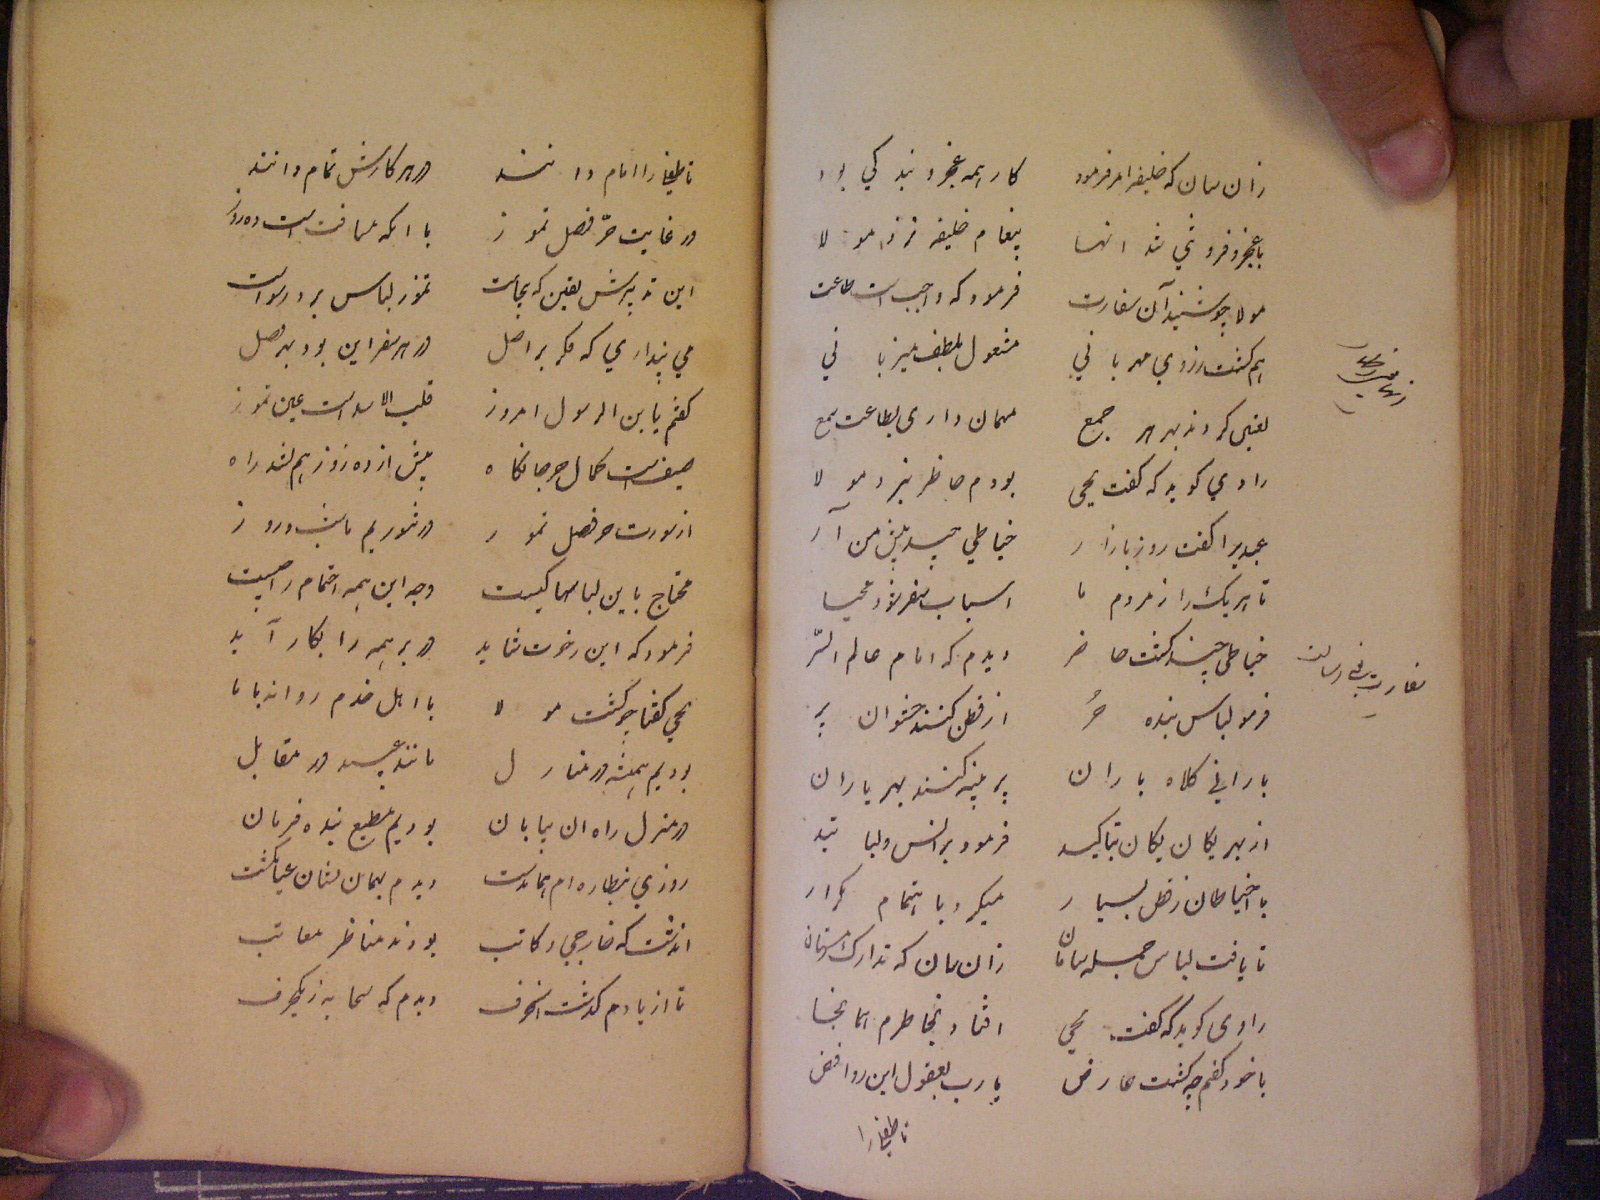 زان سان که خلیفه امر فرمود کار همه عجز و بند کی بود
با عجز و فروتنی شد انها پیغام خلیفه نزد مولا
مولا چو شنید آن سفارت فرمود که واجب است طاعت
هم کشت ز روی مهربانی مشغول بلطف میزبانی
کردند بهر جمع مهمان داری بطاعت سمع
راوی کوید که کفت یحیی بودم حاضر بنزد مولا
عبدیرا کفت روز بازار خیاطی چند پیش من آر
تا هر یک را ز مردم ما اسباب سفر شود مهیا
خیاطی چند کشت حاضر دیدم که امام عالم السّر
فرمود لباس بنده حُر از قطن کنند حشوان پر
بارانی کلاه باران پر پنبه کنند بهر یاران
از بهر یکان یکان بتاکید فرمود برانس و لبابید
با خیاطان ز فضل بسیار میکرد با اهتمام تکرار
تا یافت لباس جمله سامان زان سان که تدارک زمستان
راوی کوید که کفت یحیی افتاد بخاطرم همانجا
با خود کفتم چه کشت عارض یا رب بعقول این روافض
سفارت یحیی
تا طفل را
را امام دانند در هر کارش تمام دانند
در غایت حرّ فصل تموز با انکه مسافت است ده روز
این تدبیرش یقین که بیجاست تموز لباس برد رسواست
می پنداری که فکر بر اصل در هر سفر این بود بهر فصل
کفتم یابن الرسول امروز قلب الاسد است عین تموز
صیف است کمال حر جانکاه بیش از ده روز هم نشد راه
از سورت حر فصل تموز در شوریم ما شب و روز
محتاج باین لباسها کیست وجه این همه اهتمام را چیست
فرمود که این رخوت شاید در بر همه را بکار آید
یحیی کفتا چو کشت مولا با اهل خدم روانه با ما
بودیم همیشه در منازل مانند عبید در مقابل
در منزل راه ان بیابان بودیم مطیع بنده فرمان
روزی دیدم بهمان نشان عیان کشت
که خارجی و کاتب بودند مناظر معاتب
تا از یادم کذشت انحرف دیدم که سحابه ز یکطرف